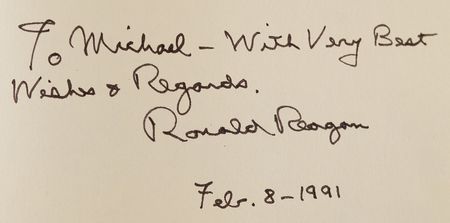 To Michael – With Very Best
Wishes & Regards.
Ronald Reagan
Feb. 8–1991